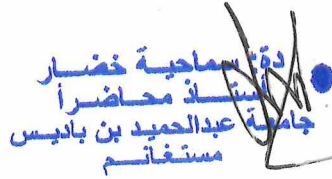 دة: سماحية خضار
أستاذ محاضرأ
جامعة عبدالحميد بن باديس
مستغانم